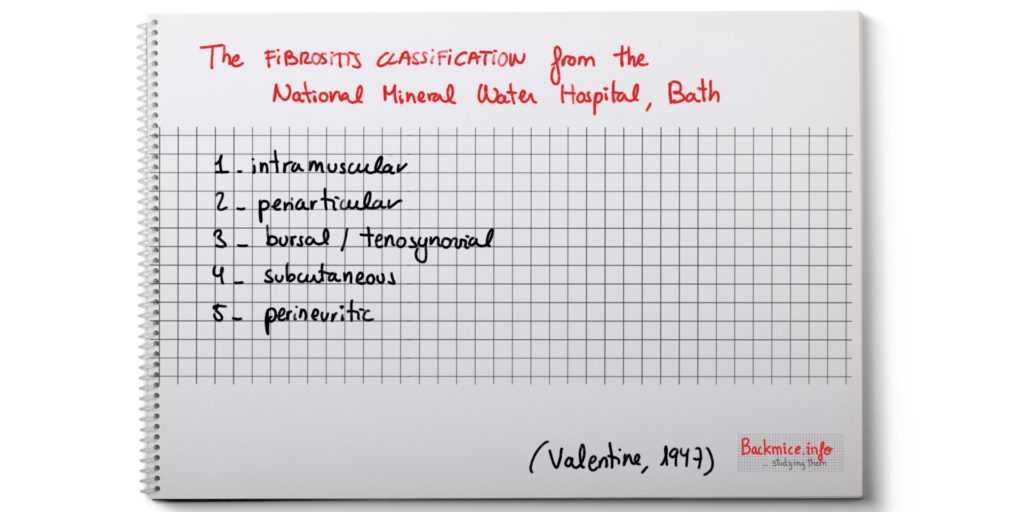 The FIBROSITIS CLASSIFICATION from the
National Mineral Water Hospital, Bath
1 - intramuscular
2 - periarticular
3 - bursal / tenosynovial
4 - subcutaneous
5 - perineuritic
(Valentine, 1947)
Backmice.info
... studying them